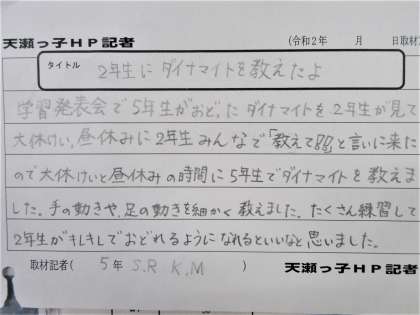 天瀬っ子HP記者
(令和2年　　月　　日取材
タイトル
2年生にダイナマイトを教えたよ
学習発表会で5年生がおどったダイナマイトを2年生が見て
大休けい、昼休みに2年生みんなで「教えて!!」と言いに来た
ので大休けいと昼休みの時間に5年生でダイナマイトを教えま
した。手の動きや、足の動きを細かく教えました。たくさん練習して
2年生がキレキレでおどれるようになれるといいなと思いました。
取材記者(　5年 S.R K.M　)　天瀬っ子HP記者